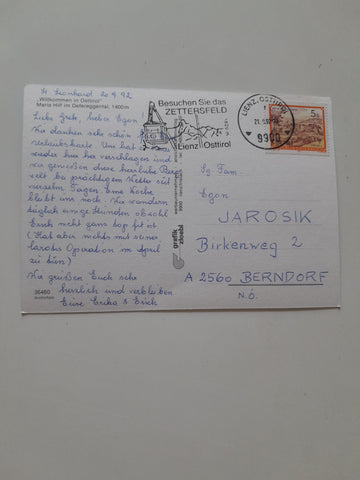 St. Leonhard 20.9.92
„Willkommen in Osttirol"
Maria Hilf im Defereggental, 1400m
Liebe Grete, lieber Egon!
Wir danken sehr schön für
Urlaubskarte. Uns hat es
wieder her verschlagen und
genießen diese herrliche Berg
welt bei prächtigem Wetter seit
Tagen. Eine Woche
bleibt uns noch. Wir wandern
täglich einige Stunden obwohl
Erich nicht ganz top fit ist
(Hat aber nichts mit seiner
Operation im April
zu tun)
Wir grüßen Euch sehr
herzlich und verbleiben
Eure Erika & Erich
36460
Besuchen Sie das
ZETTERSFELD
Lienz Osttirol
LIENZ, OSTTIROL
9900
5 S
grafik
zloebl
Sg. Fam.
Egon
JAROSIK
Birkenweg 2
A 2560 BERNDORF
N.Ö.